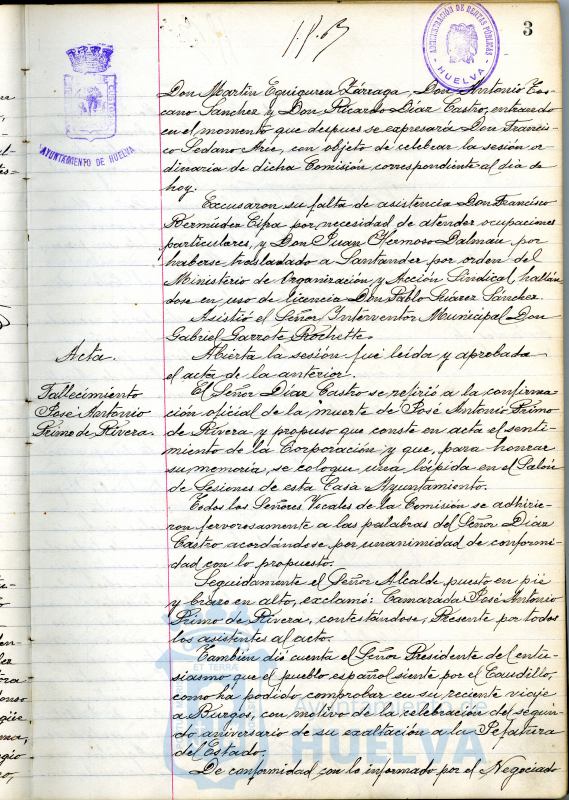 3
ADMINISTRACIÓN DE RENTAS PÚBLICAS
HUELVA
AYUNTAMIENTO DE HUELVA
Don Martín Eguiguren Zárraga, Don Antonio Tos-
cano Sanchez y Don Ricardo Díaz Castro, entrando
en el momento que despues se expresará Don Francis-
co Sedano Arce, con objeto de celebrar la sesión or-
dinaria de dicha Comisión correspondiente al día de
hoy.
Excusaron su falta de asistencia Don Francisco
Bermúdez Cifa por necesidad de atender ocupaciones
particulares, y Don Juan Hermoso Dalmau por
haberse trasladado a Santander por orden del
Ministerio de Organización y Acción Sindical, hallán-
dose en uso de licencia Don Pablo Suárez Sánchez.
Asistió el Señor Interventor Municipal Don
Gabriel Garrote Rochette.
Acta.
Abierta la sesión fué leída y aprobada
el acta de la anterior.
Fallecimiento
José Antonio
Primo de Rivera.
El Señor Díaz Castro se refirió a la confirma-
ción oficial de la muerte de José Antonio Primo
de Rivera y propuso que conste en acta el senti-
miento de la Corporación y que, para honrar
su memoria, se coloque una lápida en el Salón
de Sesiones de esta Casa Ayuntamiento.
Todos los Señores Vocales de la Comisión se adhirie-
ron fervorosamente a las palabras del Señor Díaz
Castro acordándose por unanimidad de conformi-
dad con lo propuesto.
Seguidamente el Señor Alcalde puesto en pié
y brazo en alto, exclamó: Camarada José Antonio
Primo de Rivera, contestándose, Presente por todos
los asistentes al acto.
También dió cuenta el Señor Presidente del entu-
siasmo que el pueblo español siente por el Caudillo,
como ha podido comprobar en su reciente viaje
a Burgos, con motivo de la celebración del segun-
do aniversario de su exaltación a la Jefatura
del Estado.
De conformidad con lo informado por el Negociado
ET TERRA
Ayuntamiento de
HUELVA